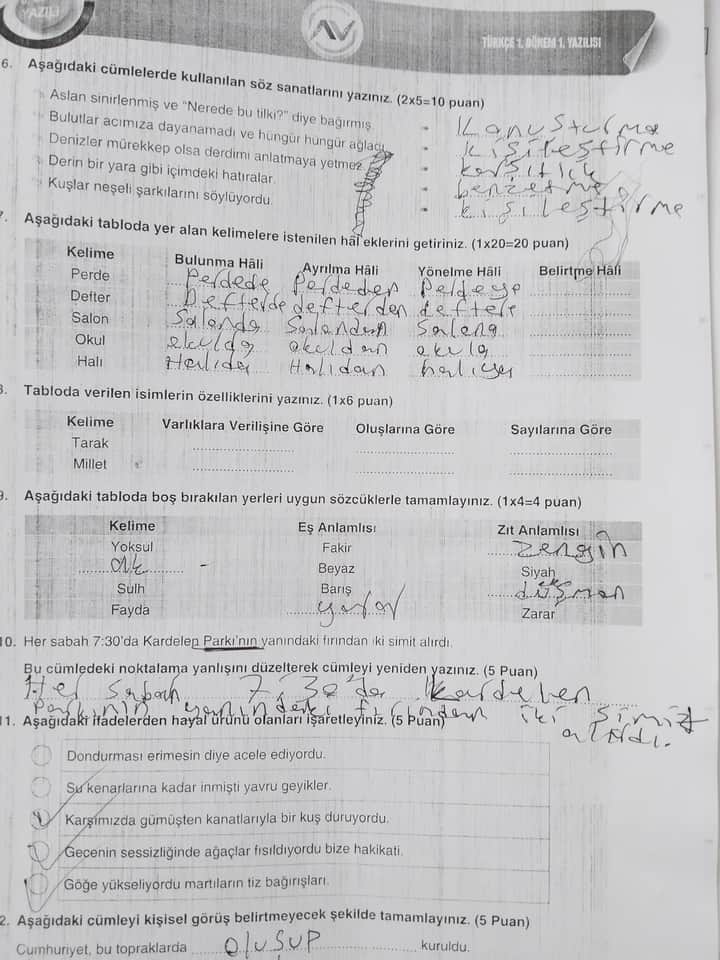 YAZILI
AV
TÜRKÇE 1. DÖNEM 1. YAZILISI
6. Aşağıdaki cümlelerde kullanılan söz sanatlarını yazınız. (2x5=10 puan)
Aslan sinirlenmiş ve "Nerede bu tilki?" diye bağırmış. - Konuşturma
Bulutlar acımıza dayanamadı ve hüngür hüngür ağladı. - kişileştirme
Denizler mürekkep olsa derdimi anlatmaya yetmez. - karşıtlık
Derin bir yara gibi içimdeki hatıralar. - benzetme
Kuşlar neşeli şarkılarını söylüyordu. - kişileştirme
7. Aşağıdaki tabloda yer alan kelimelere istenilen hâl eklerini getiriniz. (1x20=20 puan)
Kelime Bulunma Hâli Ayrılma Hâli Yönelme Hâli Belirtme Hâli
Perde Perdede Perdeden Perdeye
Defter Defterde defterden deftere
Salon Salonda Salondan Salona
Okul okulda okuldan okula
Halı Halıda Halıdan halıya
8. Tabloda verilen isimlerin özelliklerini yazınız. (1x6 puan)
Kelime Varlıklara Verilişine Göre Oluşlarına Göre Sayılarına Göre
Tarak
Millet
9. Aşağıdaki tabloda boş bırakılan yerleri uygun sözcüklerle tamamlayınız. (1x4=4 puan)
Kelime Eş Anlamlısı Zıt Anlamlısı
Yoksul Fakir zengin
ak - Beyaz Siyah
Sulh Barış düşman
Fayda yarar Zarar
10. Her sabah 7:30'da Kardelen Parkı'nın yanındaki fırından iki simit alırdı.
Bu cümledeki noktalama yanlışını düzelterek cümleyi yeniden yazınız. (5 Puan)
Her sabah 7.30'da Kardelen
Parkının yanındaki fırından iki simit
alırdı.
11. Aşağıdaki ifadelerden hayal ürünü olanları işaretleyiniz. (5 Puan)
Dondurması erimesin diye acele ediyordu.
Su kenarlarına kadar inmişti yavru geyikler.
Karşımızda gümüşten kanatlarıyla bir kuş duruyordu.
Gecenin sessizliğinde ağaçlar fısıldıyordu bize hakikati.
Göğe yükseliyordu martıların tiz bağırışları.
2. Aşağıdaki cümleyi kişisel görüş belirtmeyecek şekilde tamamlayınız. (5 Puan)
Cumhuriyet, bu topraklarda oluşup kuruldu.